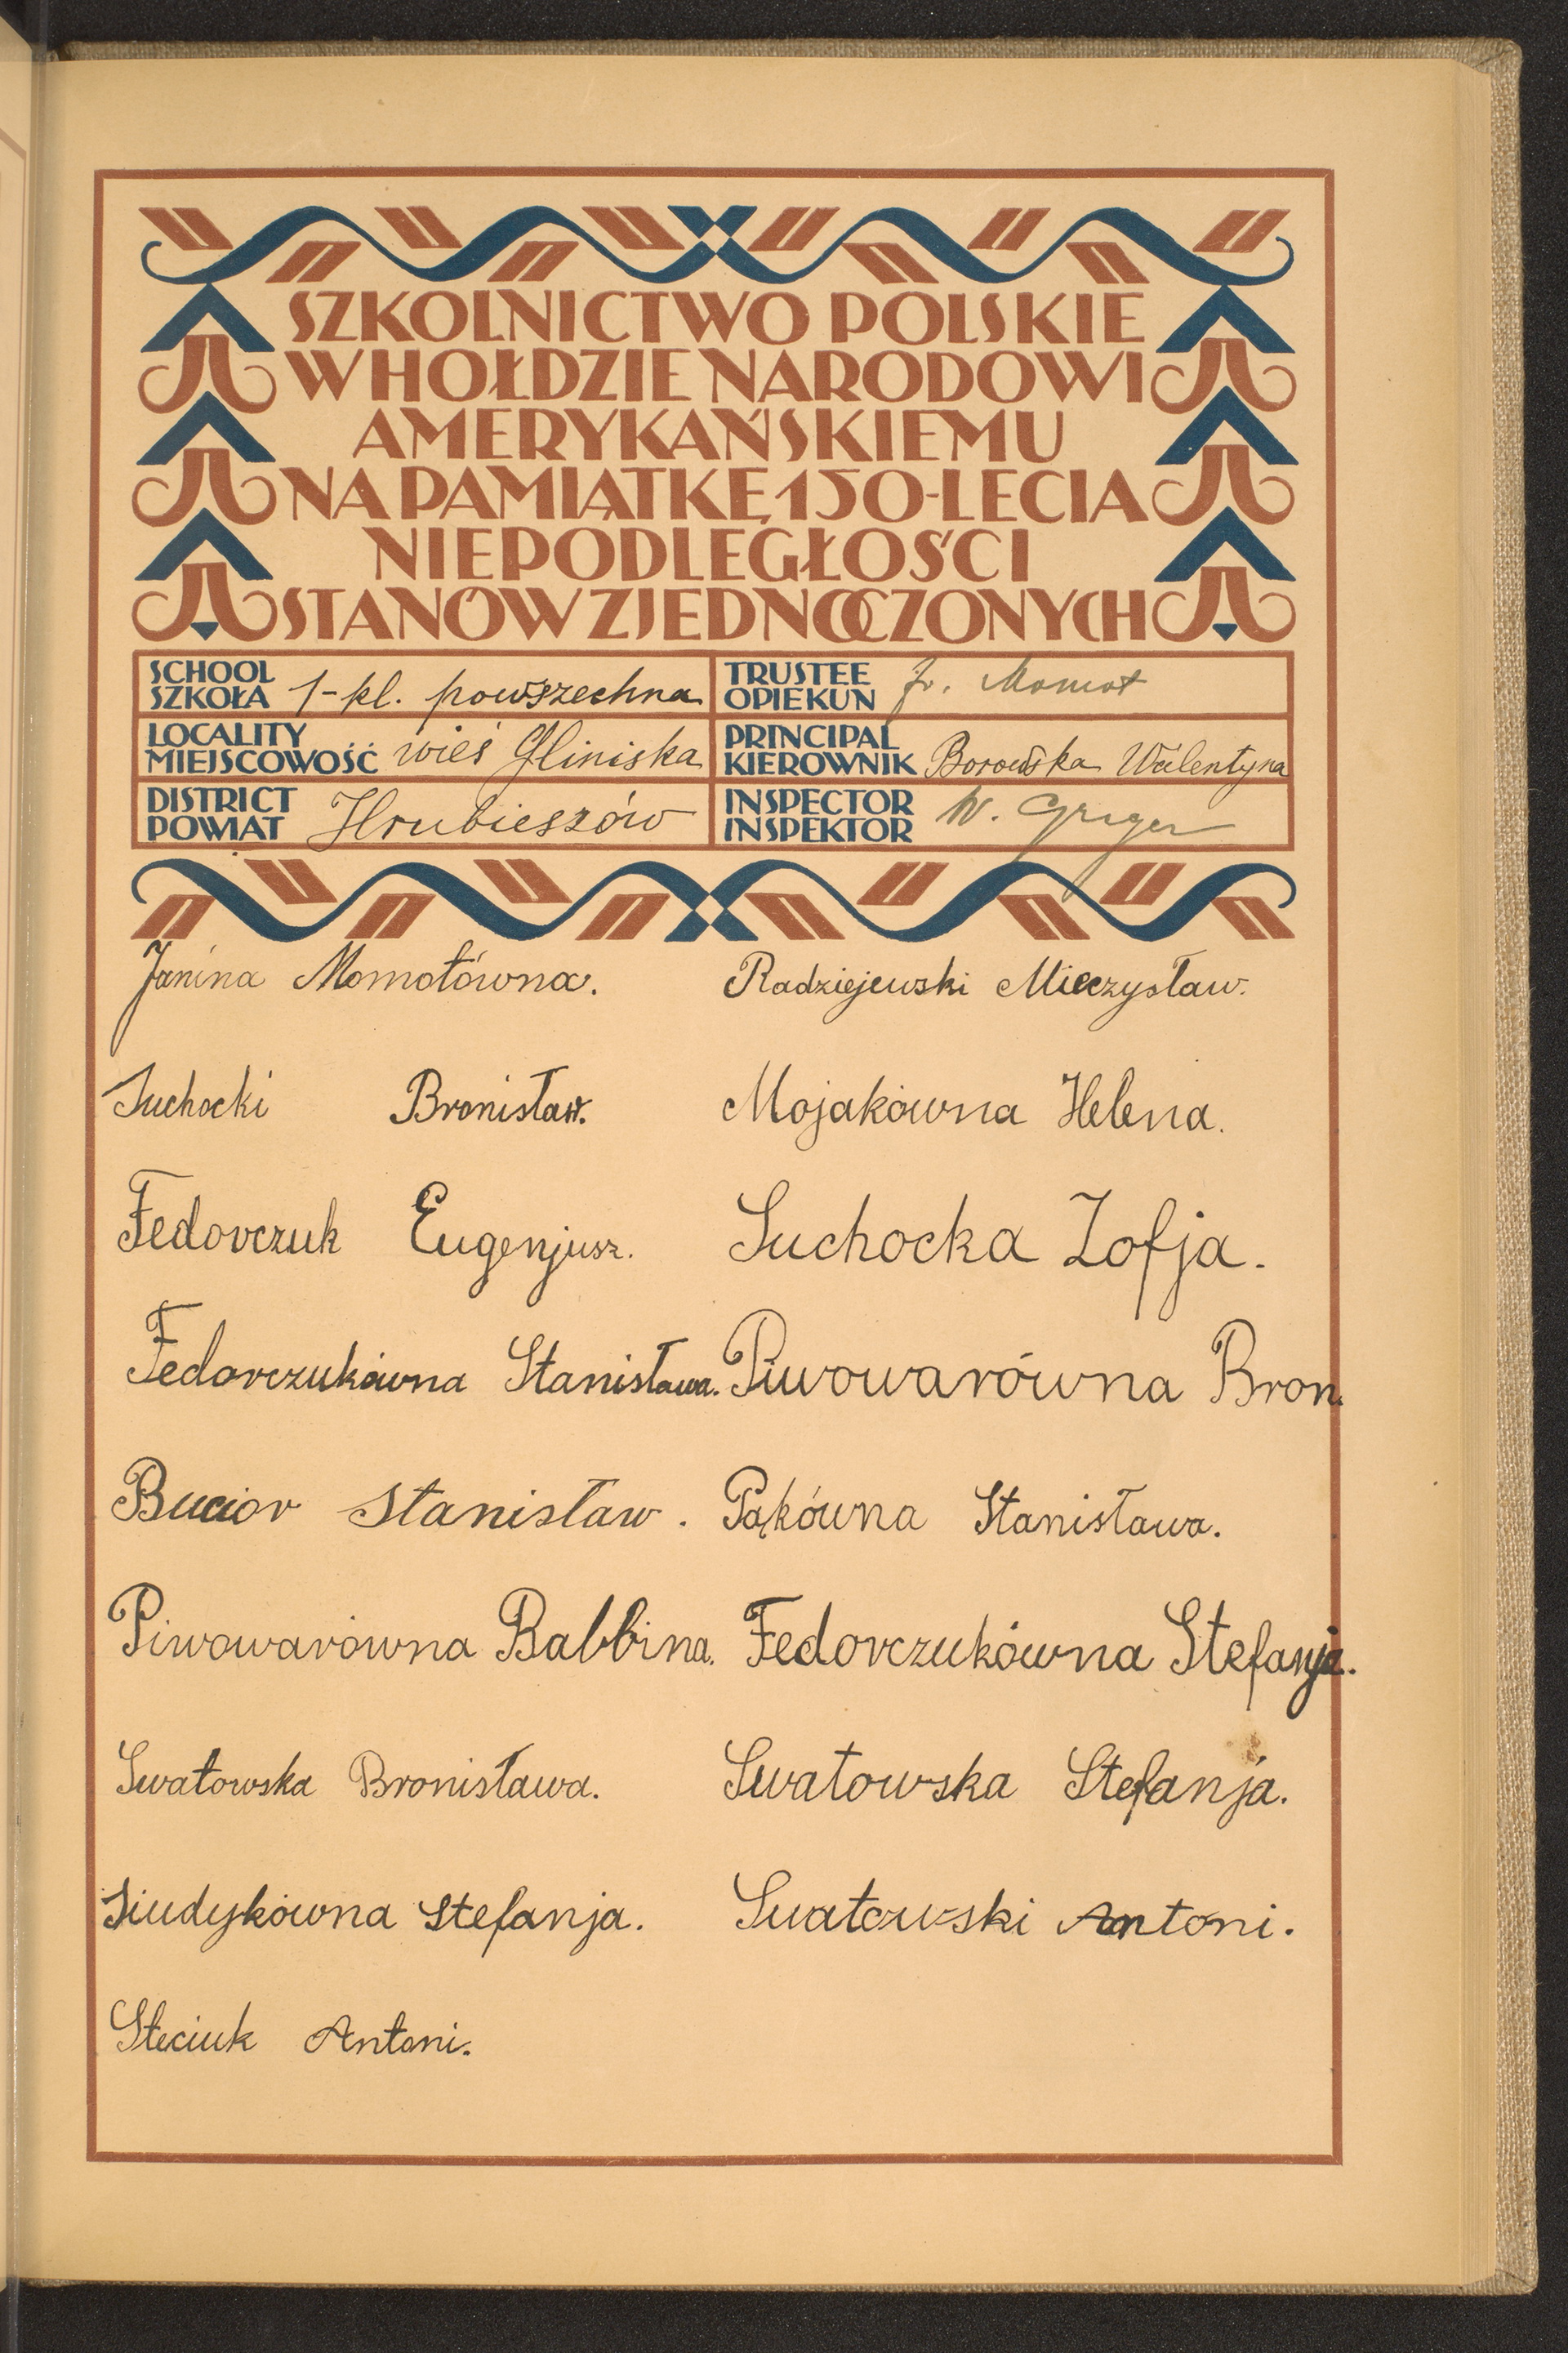 SZKOLNICTWO POLSKIE
W HOŁDZIE NARODOWI
AMERYKAŃSKIEMU
NA PAMIĄTKĘ 150-LECIA
NIEPODLEGŁOŚCI
STANÓW ZJEDNOCZONYCH
SCHOOL
SZKOŁA 1-kl. powszechna
TRUSTEE
OPIEKUN Fr. Momot
LOCALITY
MIEJSCOWOŚĆ wieś Gliniska
PRINCIPAL
KIEROWNIK Borowska Walentyna
DISTRICT
POWIAT Hrubieszów
INSPECTOR
INSPEKTOR W. Griger
Janina Momotówna.
Suchocki Bronisław.
Fedorczuk Eugenjusz.
Fedorczukówna Stanisława.
Bucior Stanisław.
Piwowarówna Balbina.
Swatowska Bronisława.
Siudykówna Stefanja.
Steciuk Antoni.
Radziejewski Mieczysław.
Mojakówna Helena.
Suchocka Zofja.
Piwowarówna Bron.
Pąkówna Stanisława.
Fedorczukówna Stefanja.
Swatowska Stefanja.
Swatowski Antoni.